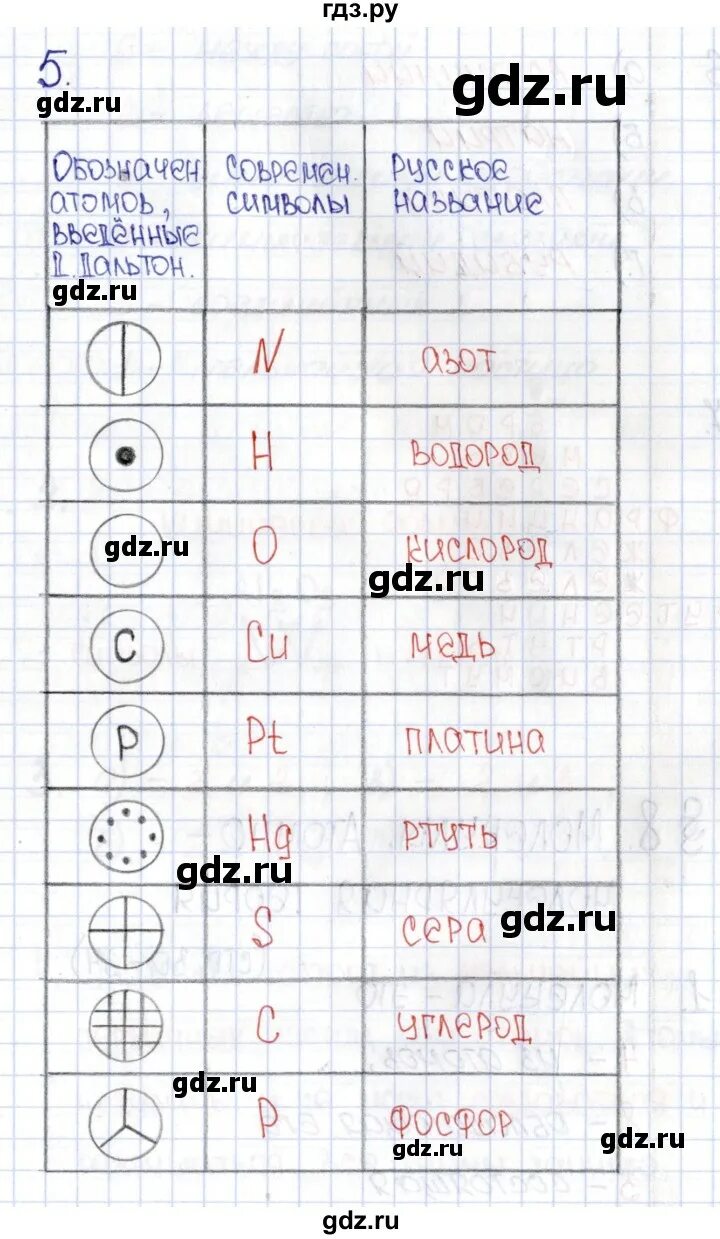 гдз.ру
5.
gdz.ru
gdz.ru
Обозначен. атомов, введённые Д. Дальтон.
Современ. символы
Русское название
gdz.ru
N азот
H водород
gdz.ru O кислород
gdz.ru
C Cu медь
P Pt платина
Hg ртуть
gdz.ru
S сера
gdz.ru
C углерод
gdz.ru
P фосфор
gdz.ru
gdz.ru
gdz.ru